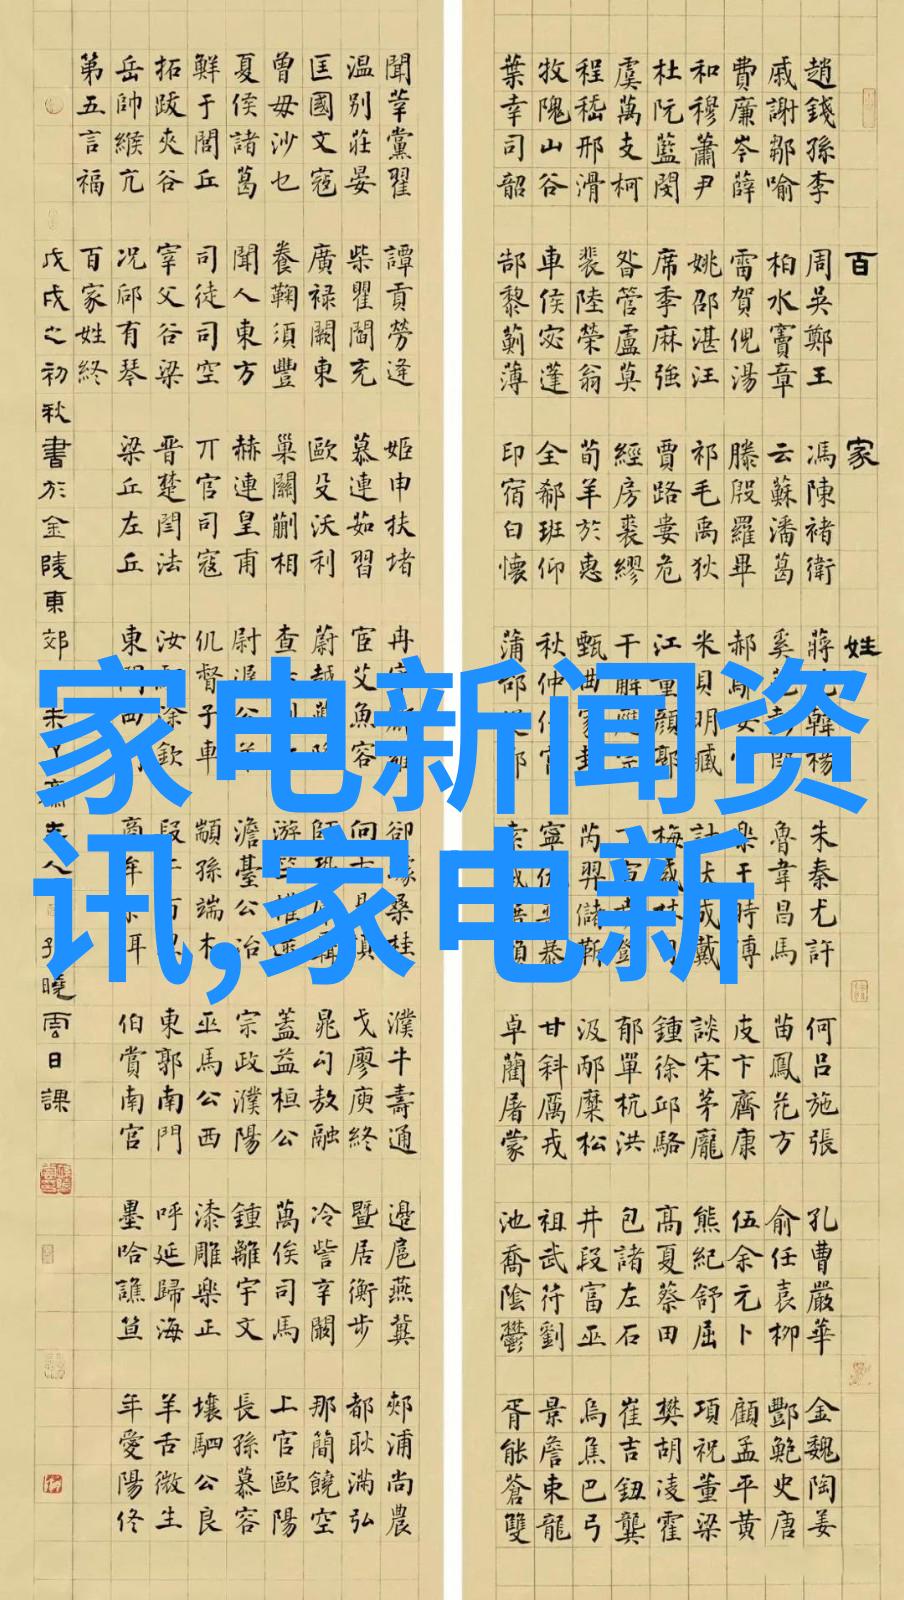 百家姓
趙錢孫李周吳鄭王馮陳褚衛蔣沈韓楊朱秦尤許何呂施張孔曹嚴華金魏陶姜
戚謝鄒喻柏水竇章云蘇潘葛奚范彭郎魯韋昌馬苗鳳花方俞任袁柳酆鮑史唐
費廉岑薛雷賀倪湯滕殷羅畢郝鄔安樂于時傅皮卞齊康伍余元卜顧孟平黃
和穆蕭尹姚邵湛汪祁毛禹狄米貝明臧計伏成戴談宋茅龐熊紀舒屈項祝董梁
杜阮藍閔席季麻強賈路婁危江童顏郭梅盛林刁鍾徐邱駱高夏蔡田樊胡凌霍
虞萬支柯昝管盧莫經房裘繆干解應宗丁宣鄧郁單杭洪包諸左石崔吉鈕龔
程嵇邢滑裴陸榮翁荀羊於惠甄曲家封芮羿儲靳汲邴糜松井段富巫烏焦巴弓
牧隗山谷車侯宓蓬全郗班仰秋仲伊宮寧仇暴甘斜厲戎祖武符劉景詹束龍
葉幸司韶郜黎薊薄印宿白懷蒲邰鄂索咸賴卓藺屠蒙池喬陰鬱胥能蒼雙
聞莘黨翟譚貢勞逄姬申扶堵冉宰酈雍卻璩桑桂濮牛壽通邊扈燕冀郟浦尚農
温別莊晏柴瞿閻充慕連茹習宦艾魚容向古易慎戈廖庾終暨居衡步都耿滿弘
匡國文寇廣祿闕東歐殳沃利蔚越隆師鞏聶晁勾敖融冷訾辛闞那簡饒空
曾毋沙乜養鞠須豐巢關蒯相查游竺權逯蓋益桓公萬俟司馬上官歐陽
夏侯諸葛聞人東方赫連皇甫尉遲公羊澹臺公冶宗政濮陽鍾離宇文長孫慕容
鮮于閭丘司徒司空丌官司寇仉督子車顓孫端木巫馬公西漆雕樂正壤駟公良
拓跋夾谷宰父谷梁晉楚閆法汝鄢涂欽段干百里東郭南門呼延歸海羊舌微生
岳帥緱亢況郈有琴梁丘左丘東門西門商牟佘佴伯賞南宮墨哈譙笪年愛陽佟
第五言福百家姓終
戊戌之初秋書於金陵東郊人曉雲日課
家电新闻资
讯,家电新